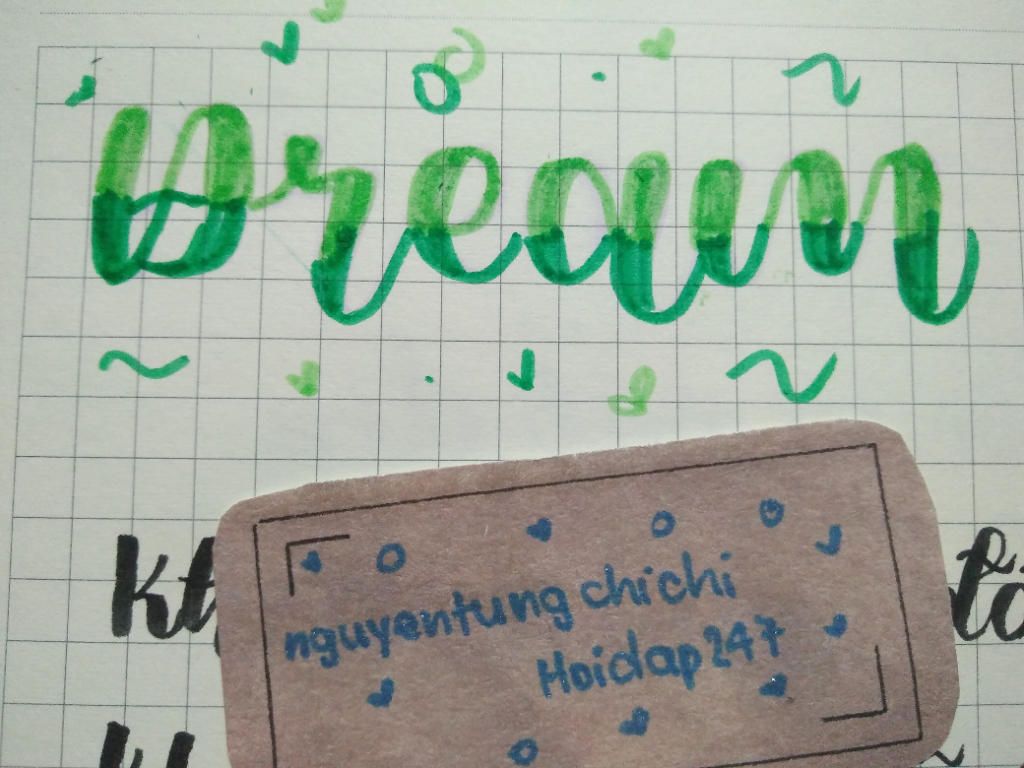 Dream
nguyentung chi chi
Hoidap247